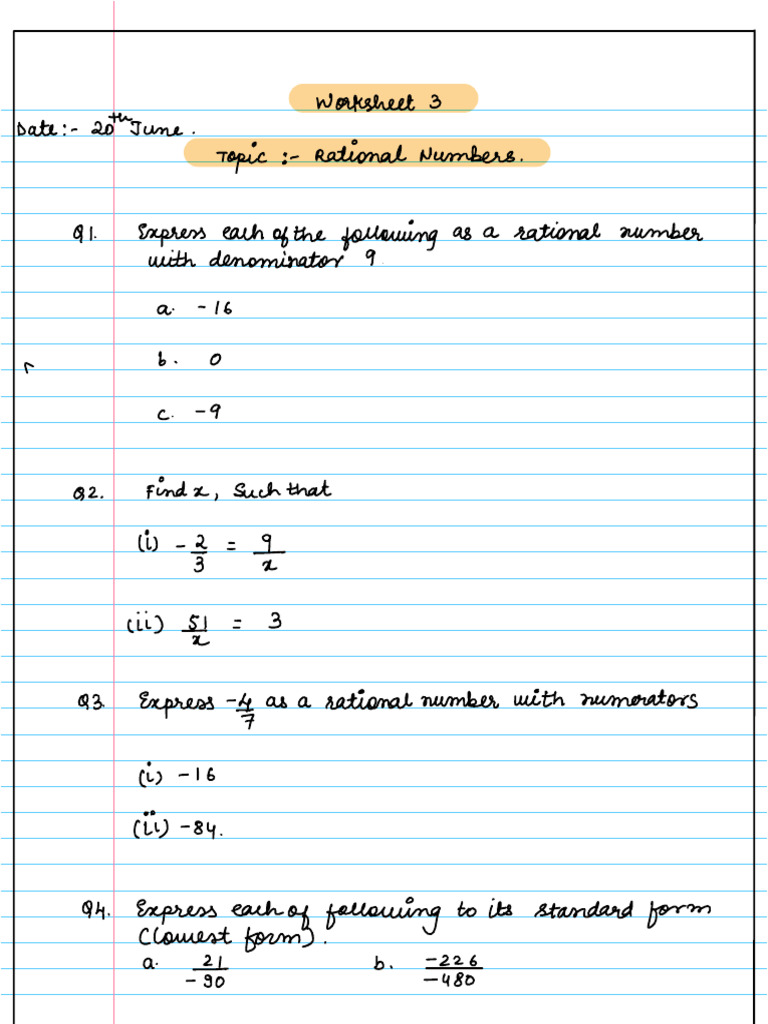 Worksheet 3
Date:- 20th June.
Topic :- Rational Numbers.
Q1. Express each of the following as a rational number
with denominator 9.
a. -16
b. 0
c. -9
Q2. Find x, Such that
(i) -2/3 = 9/x
(ii) 51/x = 3
Q3. Express -4/7 as a rational number with numerators
(i) -16
(ii) -84.
Q4. Express each of following to its standard form
(lowest form).
a. 21/-90 b. -226/-480